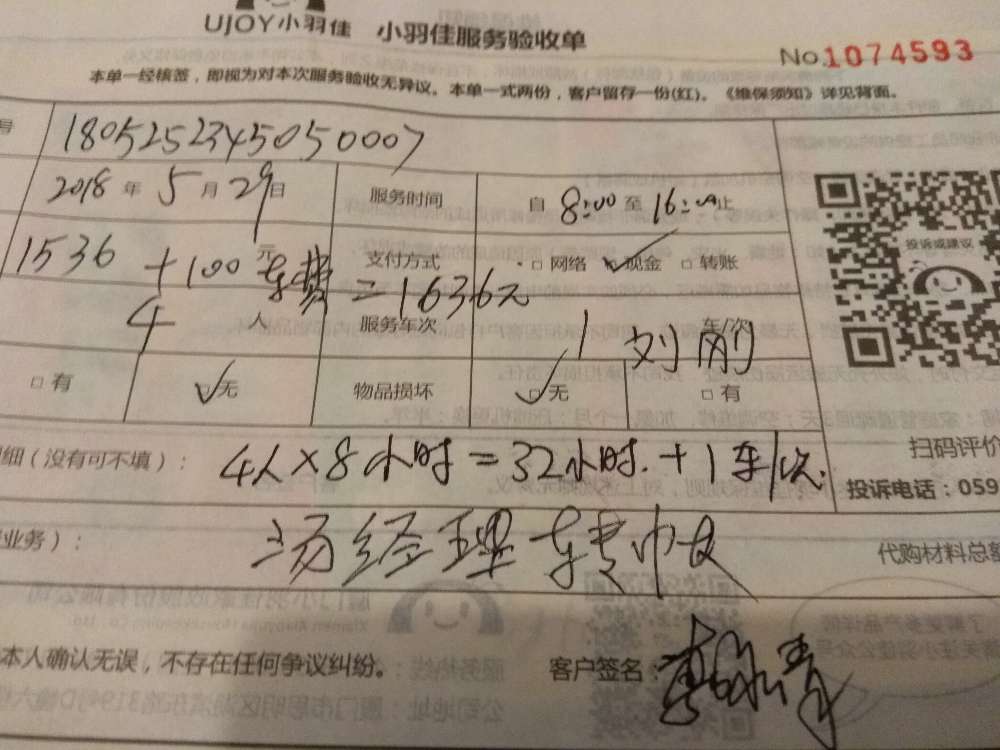 UJOY小羽佳 小羽佳服务验收单
No.1074593
本单一经核签，即视为对本次服务验收无异议。本单一式两份，客户留存一份(红)。《维保须知》详见背面。
号 1805252345050007
2018年5月29日 服务时间 自8:00至16:00止
1536元+100车费=1636元 支付方式 □网络 ☑现金 □转账
投诉或建议
4人 服务车次 1车/次 刘刚
□有 ☑无 物品损坏 ☑无 □有
扫码评价
细（没有可不填）： 4人×8小时=32小时.+1车/次.
投诉电话：059
业务）： 汤经理转收
代购材料总额
本人确认无误，不存在任何争议纠纷。 客户签名：